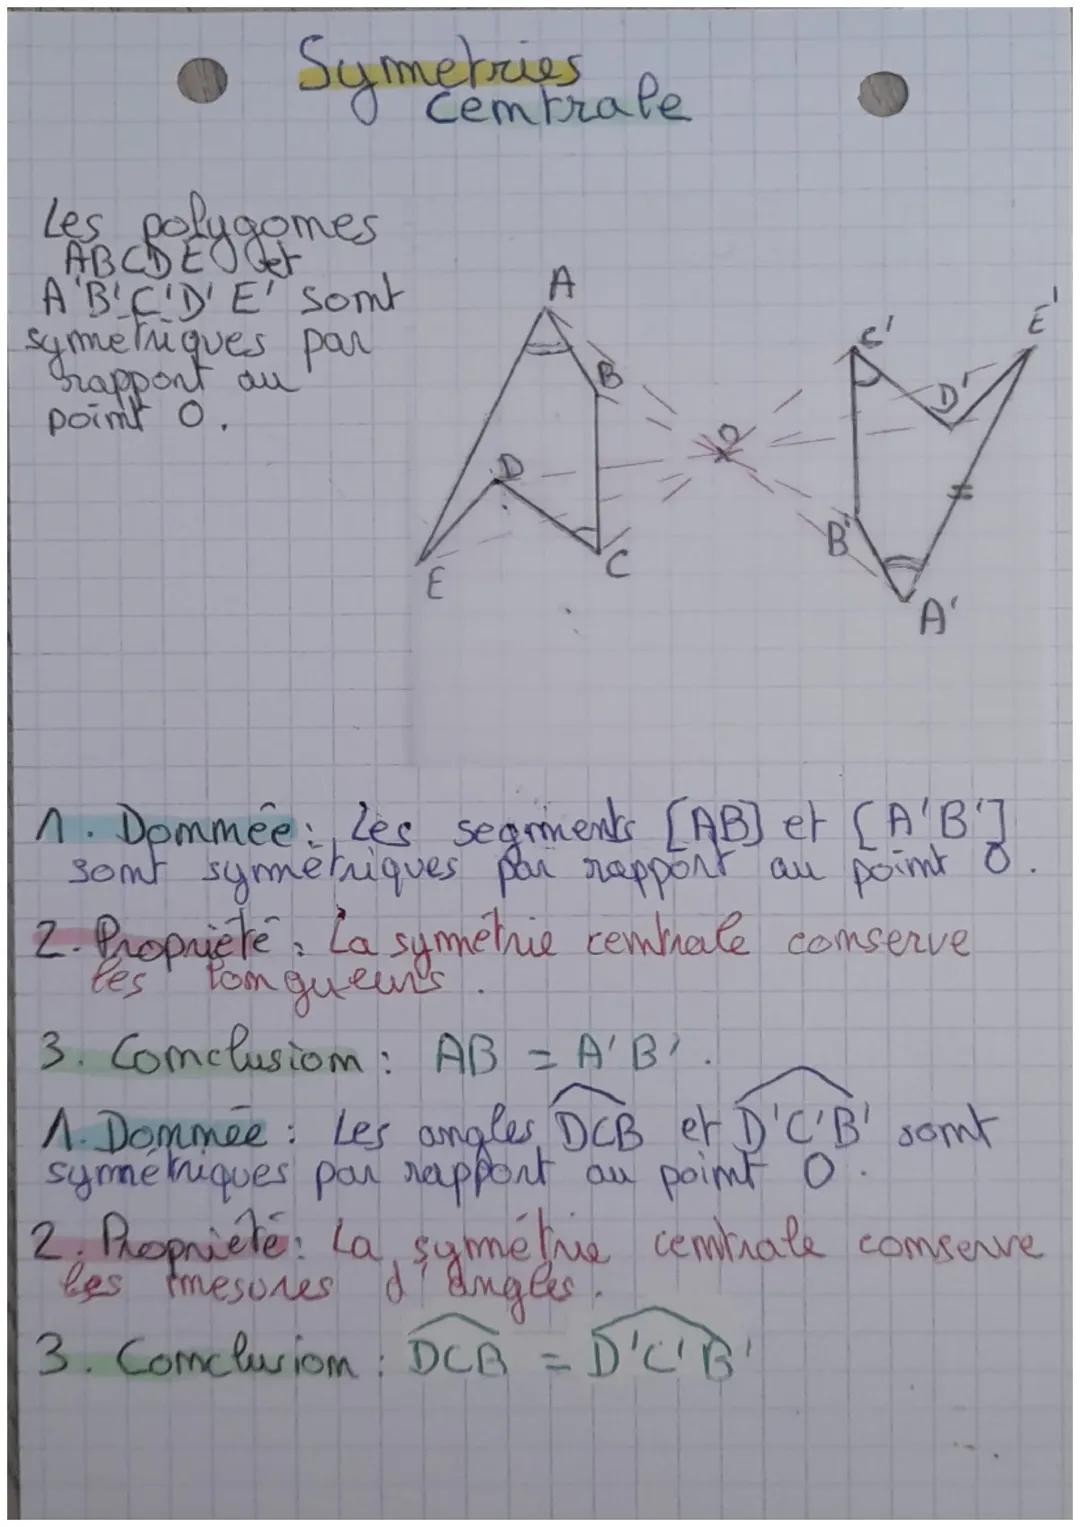 Symetries
Centrale
Les polygones
ABCDE et
A'B'C'D'E' sont
symetriques par
rapport au
point O.
A
B
C
D
E
O
C'
E'
D'
B'
A'
1. Donnée : Les segments [AB] et [A'B']
sont symétriques par rapport au point O.
2. Propriété : La symétrie centrale conserve
les longueurs.
3. Conclusion : AB = A'B'.
1. Donnée : Les angles DCB et D'C'B' sont
symétriques par rapport au point O.
2. Propriété : La symétrie centrale conserve
les mesures d'angles.
3. Conclusion : DCB = D'C'B'